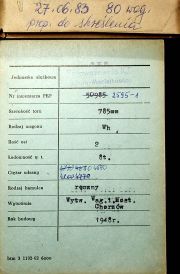 27.06.83 80 wag.
prop. do skreślenia
Jednostka służbowa
Nr inwentarza PKP 50985 2595-1
Szerokość toru 785mm
Rodzaj wagonu Wh
Ilość osi 2
Ładowność w t. 8t.
Ciężar własny 4470
Rodzaj hamulca ręczny
Wytwórnia Wytw. Wag.i Most.
Chorzów
Rok budowy 1948r.